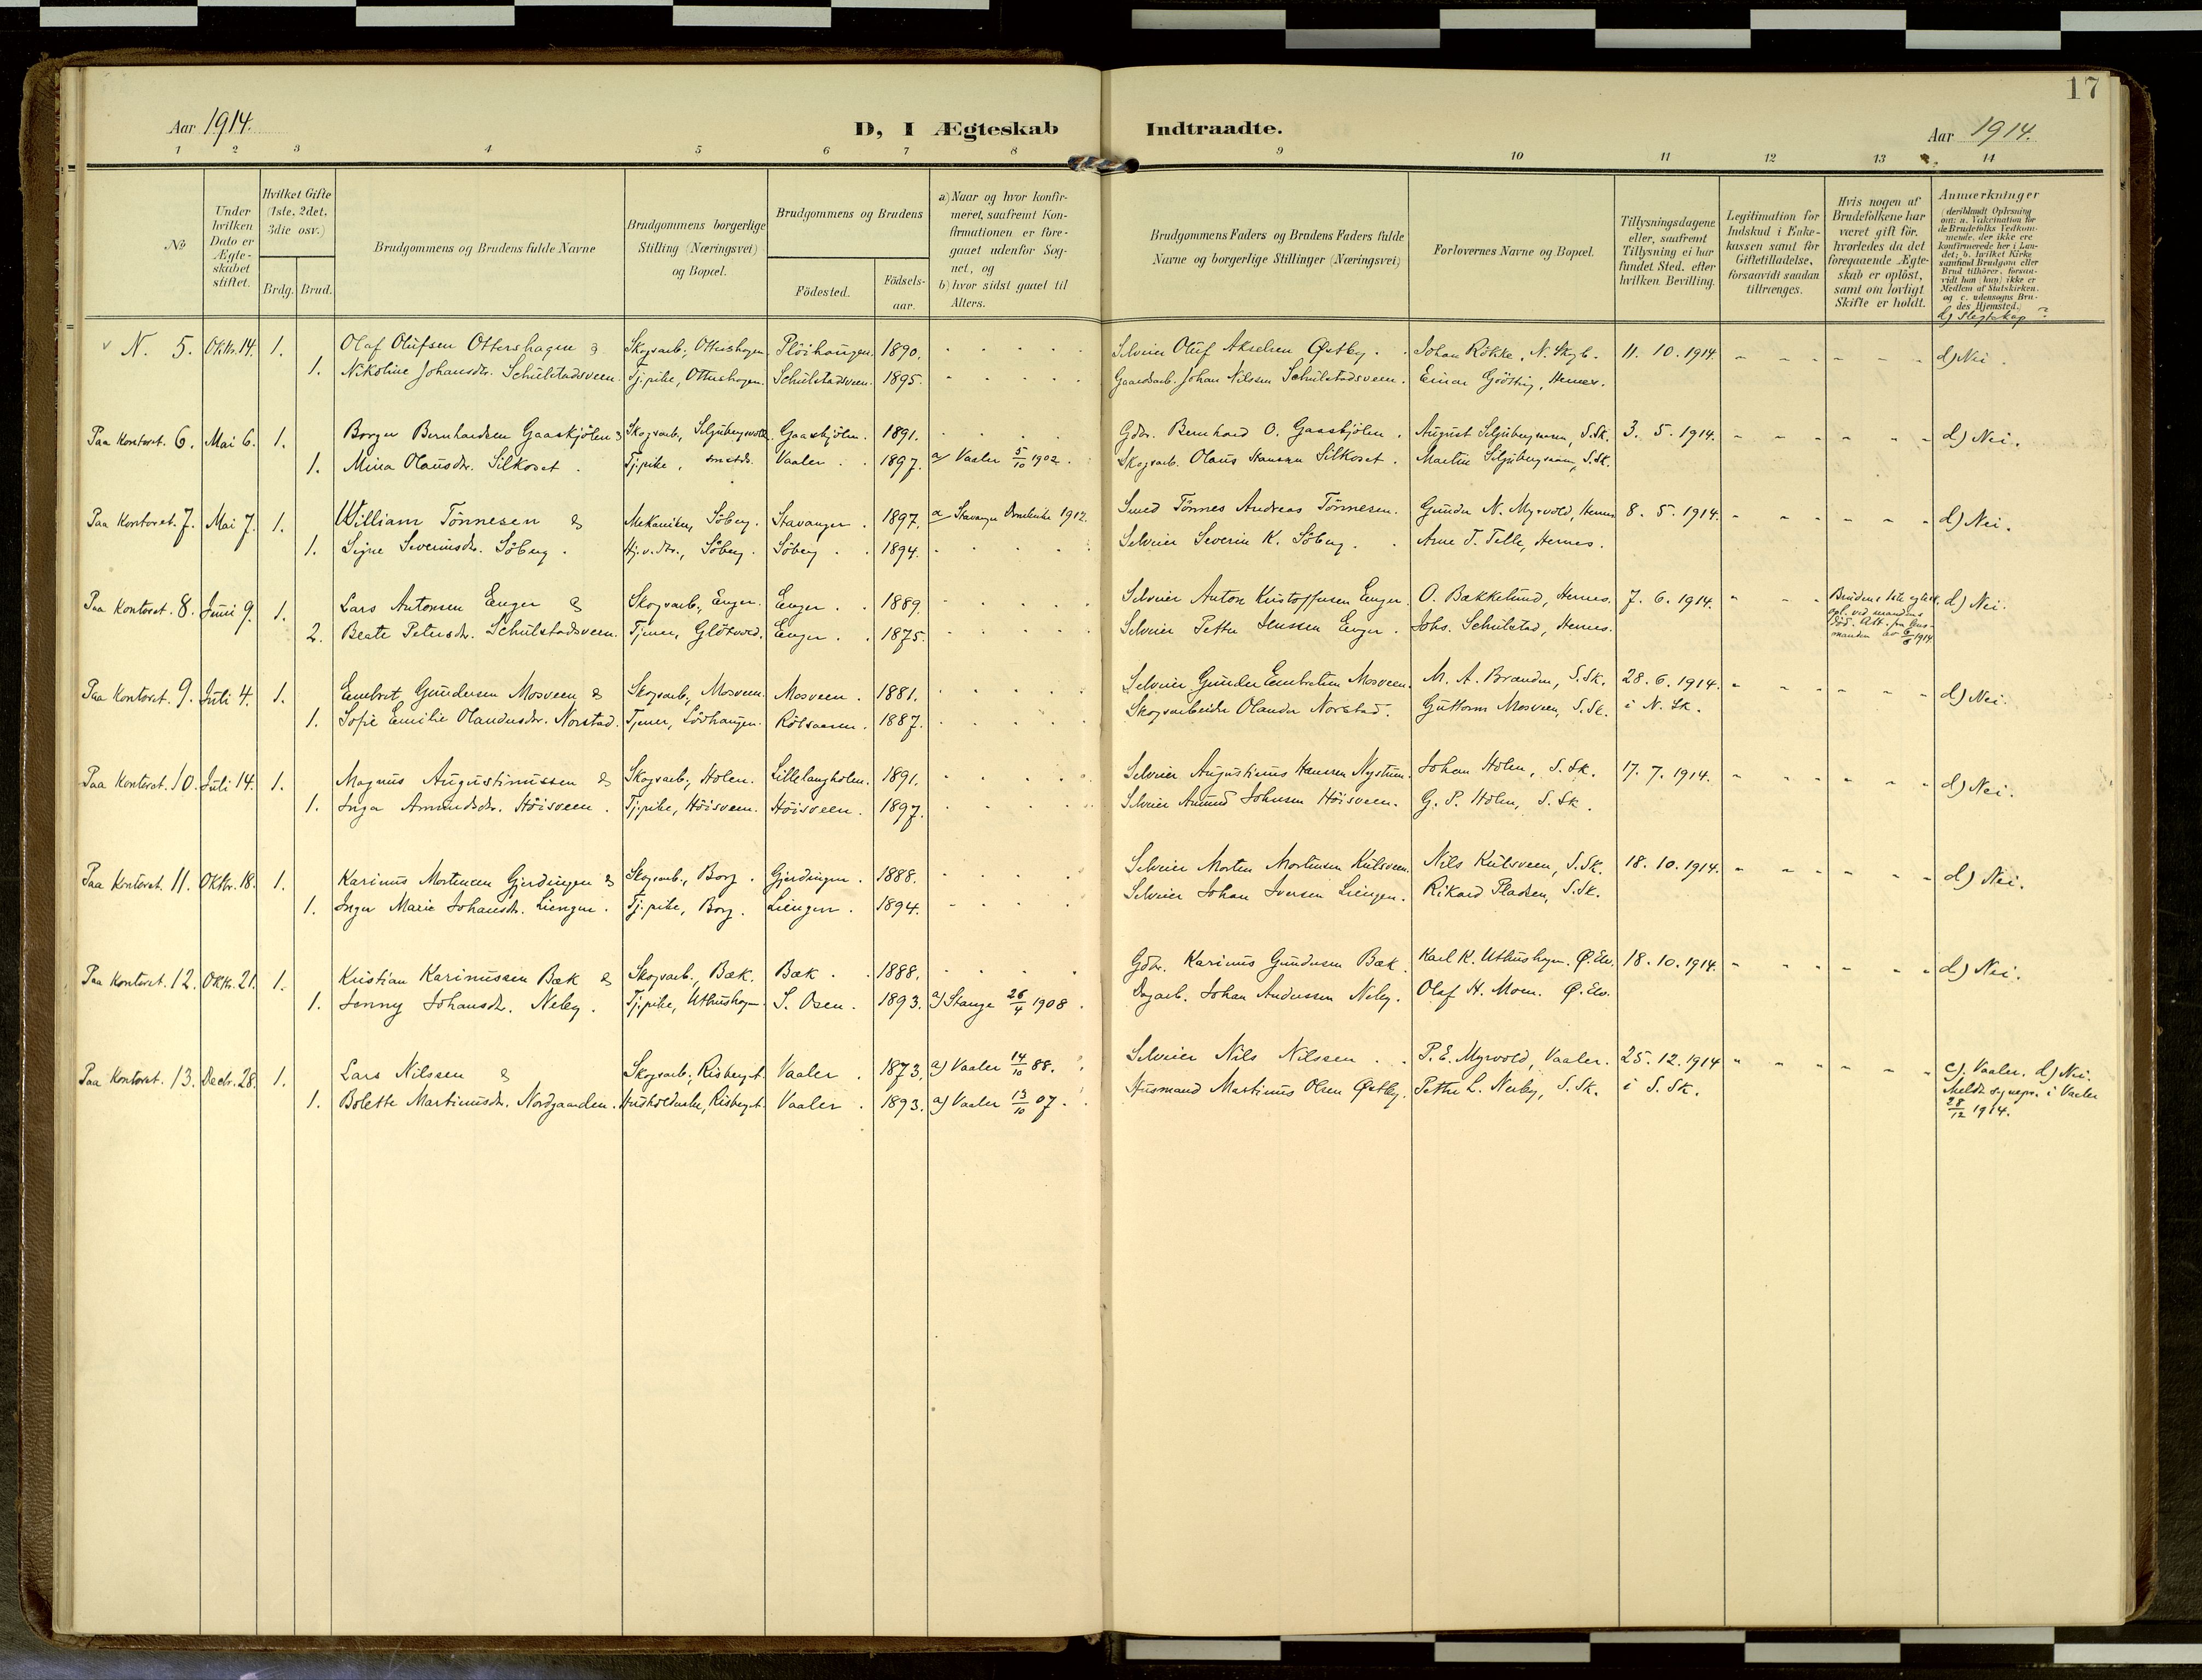 17
Aar 1914.
D, I Ægteskab Indtraadte.
Aar 1914.
1 2 3 4 5 6 7 8 9 10 11 12 13 14
No
Under hvilken Dato er Ægteskabet stiftet.
Hvilket Gifte (1ste, 2det, 3die osv.)
Brdg. Brud.
Brudgommens og Brudens fulde Navne
Brudgommens borgerlige Stilling (Næringsvei) og Bopæl.
Brudgommens og Brudens
Födested.
Födselsaar.
a) Naar og hvor konfirmeret, saafremt Konfirmationen er foregaaet udenfor Sognet, og
b) hvor sidst gaaet til Alters.
Brudgommens Faders og Brudens Faders fulde Navne og borgerlige Stillinger (Næringsvei)
Forlovernes Navne og Bopæl.
Tillysningsdagene eller, saafremt Tillysning ei har fundet Sted, efter hvilken Bevilling.
Legitimation for Indskud i Enkekassen samt for Giftetilladelse, forsaavidt saadan tiltrænges.
Hvis nogen af Brudefolkene har været gift för, hvorledes da det foregaaende Ægteskab er oplöst, samt om lovligt Skifte er holdt.
Anmærkninger
(deriblandt Oplysning om: a. Vakcination for de Brudefolks Vedkommende, der ikke ere konfirmerede her i Landet; b. hvilket Kirkesamfund Brudgom eller Brud tilhører, forsaavidt han (hun) ikke er Medlem af Statskirken, og c. udensogns Brudes Hjemsted.)
d) Slegtskap?
N. 5. Oktbr. 14. 1. Olaf Olufsen Ottershagen & Skogsarb., Ottershagen. Plöihaugen. 1890. Selveier Oluf Akselsen Østby. Johan Rökke, N. Skogb. 11. 10. 1914. d) Nei.
1. Nikoline Johansdr. Schulstadsveen. Tj.pike, Ottershagen. Schulstadsveen. 1895. Gaardsarb. Johan Nilssen Schulstadsveen. Einar Gjötting, Hernes.
Paa Kontoret. 6. Mai 6. 1. Borger Bernhardsen Gaaskjölen & Skogsarb., Gaaskjölen. 1891. Gdbr. Bernhard O. Gaaskjölen. August S.Sk. 3. 5. 1914. d) Nei.
1. Mina Olausdr. Silkoset. Tj.pike, smstds. Vaaler. 1897. a) Vaaler 5/10 1902. Skogsarb. Olaus Hansen Silkoset. Martin S.Sk.
Paa Kontoret. 7. Mai 7. 1. William Tönnesen & Mekaniker, Söberg. Stavanger. 1897. a) Stavanger Domkirke 1912. Smed Tönnes Andreas Tönnesen. Gunder N. Myrvold, Hernes 8. 5. 1914. d) Nei.
1. Signe Severinsdr. Söberg. Hj.v. dtr., Söberg. Söberg. 1894. Selveier Severin K. Söberg. Arne T. Telle, Hernes.
Paa Kontoret. 8. Juni 9. 1. Lars Antonsen Enger & Skogsarb., Enger. Enger. 1889. Selveier Anton Kristoffersen Enger. O. Bækkelund, Hernes. 7. 6. 1914. Brudens 1ste egtesk. opl. ved mandens död. Att. fra lensmanden av 6/6 1914 d) Nei.
2. Beate Petersdr. Schulstadsveen. Tjener, Glötvold. Enger. 1875. Selveier Petter Jenssen Enger. Johs. Schulstad, Hernes.
Paa Kontoret. 9. Juli 4. 1. Embret Gundersen Mosveen & Skogsarb., Mosveen. Mosveen. 1881. Selveier Gunder Embretsen Mosveen. M. A. Branden, S.Sk. 28. 6. 1914. d) Nei.
1. Sofie Emilie Olandusdr. Norstad. Tjener, Lövhaugen. Rötsaasen. 1887. Skogsarbeider Olander Norstad. Guttorm Mosveen, S.Sk. i N. Sk.
Paa Kontoret. 10. Juli 14. 1. Magnus Augustinussen & Skogsarb., Holen. Lillelangholen. 1891. Selveier Augustinus Hansen Nystuen. Johan Holen, S.Sk. 17. 7. 1914. d) Nei.
1. Inga Amundsdr. Höisveen. Tj.pike, Höisveen. Höisveen. 1897. Selveier Amund Johnsen Höisveen. G. P. Holen, S.Sk.
Paa Kontoret. 11. Oktbr. 18. 1. Karinus Mortensen Gjerdingen & Skogsarb., Borg. Gjerdingen. 1888. Selveier Morten Mortensen Kulsveen. Nils Kulsveen, S.Sk. 18. 10. 1914. d) Nei.
1. Inger Marie Johansdr. Liengen. Tj.pike, Borg. Liengen. 1894. Selveier Johan Iversen Liengen. Rikard Pladsen, S.Sk.
Paa Kontoret. 12. Oktbr. 21. 1. Kristian Karinussen Bæk & Skogsarb., Bæk. Bæk. 1888. Gdbr. Karinus Gundersen Bæk. Karl K. Uthushagen. Ø. Elv. 18. 10. 1914. d) Nei.
1. Jenny Johansdr. Neby. Tj.pike, Uthushagen. S. Osen. 1893. a) Stange 26/4 1908. Dagarb. Johan Anderssen Neby. Olaf H. Moen. Ø. Elv.
Paa Kontoret. 13. Decbr. 28. 1. Lars Nilssen & Skogsarb., Risberget. Vaaler. 1873. a) Vaaler 14/10 88. Selveier Nils Nilssen. P. E. Myrvold, Vaaler. 25. 12. 1914 c) Vaaler. d) Nei.
1. Bolette Martinusdr. Nordgaarden. Husholderske, Risberget. Vaaler. 1893. a) Vaaler 13/10 07. Husmand Martinus Olsen Østby. Petter L. Nerby, S.Sk. i S. Sk. Meldt sognepr. i Vaaler 28/12 1914.